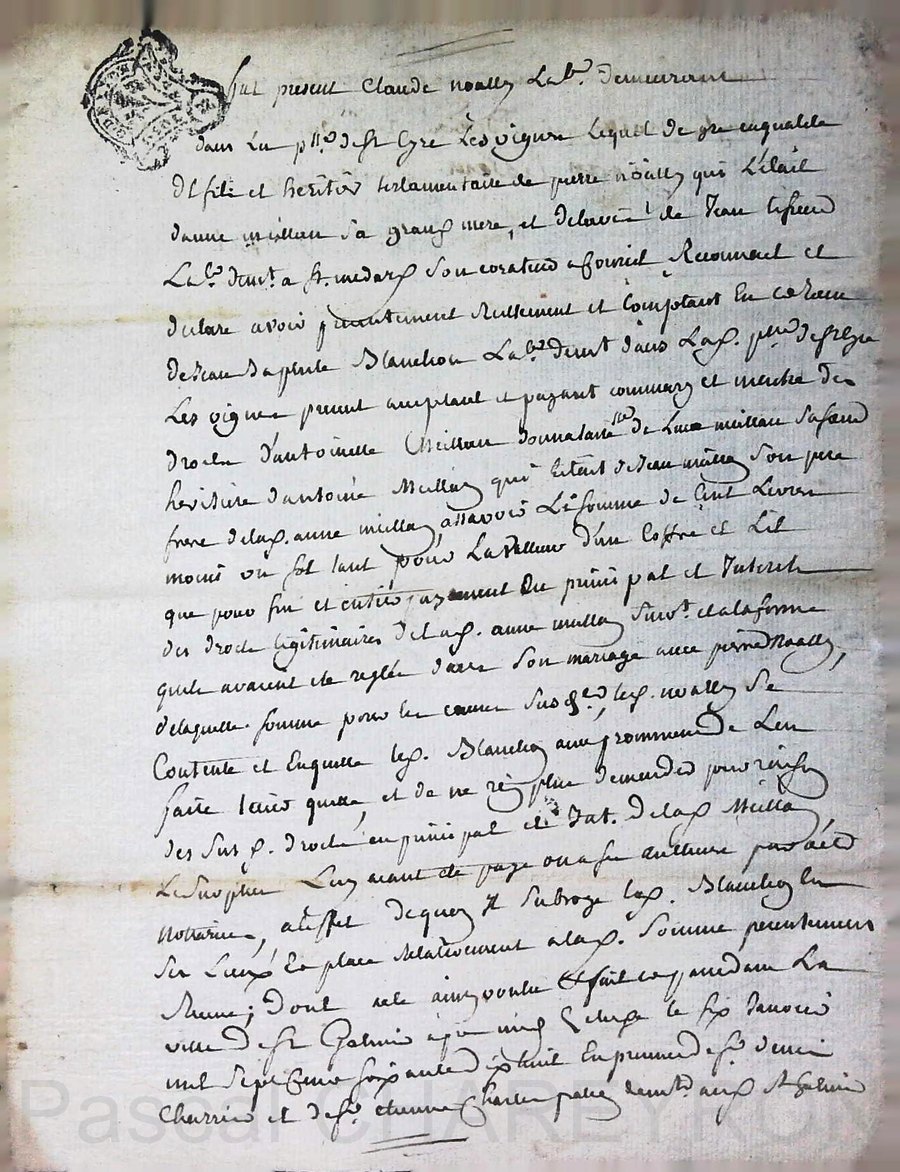 fut present Claude noally Lab.r demeurant
dans La p.sse de St Cyre Les vignes lequel de gre en qualite
de fils et heritier testamentaire de pierre noally qui L'etait
danne meillan sa grand mere, et de Jean
Lab.r dem.t a St. medard Son curateur Reconnait et
declare avoir presentement Reellement et Comptant En
de Jean Baptiste Blanchon Lab.r dem.t dans Lad. p.sse de St Cyre
Les vignes present acceptant et payant comme mary et maitre des
droits d'antoinette Meillan donnataire de Meillan
heritiere d'antoine Meillan qui Letait de Jean Meillan Son pere
frere de lad. anne meillan, assavoir La somme de Cent Livres
moins un sol tant pour La valleur d'un Coffre et Lit
que pour fin et entier payement du principal et Interets
des droits legitimaires de lad. anne meillan suiv.t et a la forme
quils avaient ete reglés dans Son mariage avec pierre Noally,
de laquelle somme pour les causes Susd.es, led. noally Se
Contente et En quitte led. Blanchon avec promesse de Len
faire tenir quitte, et de ne rien plus demander pour raison
des Susd. droits en principal et Int. de lad. Meillan,
Le Surplus Luy ayant ete payé par acte
Nottarié, a leffet dequoy Il Subroge led. Blanchon En
Ses Lieux et place relativement a lad. Somme presentement
Receue; Dont acte ainsy voulu fait et passé dans La
ville de St Galmier apres midy Le six Janvier
mil Sept Cens soixante dix huit En presence de S.r denis
Charrier et de S.r etienne Charles dem.t aud. St galmier
Pascal CHAREYRON